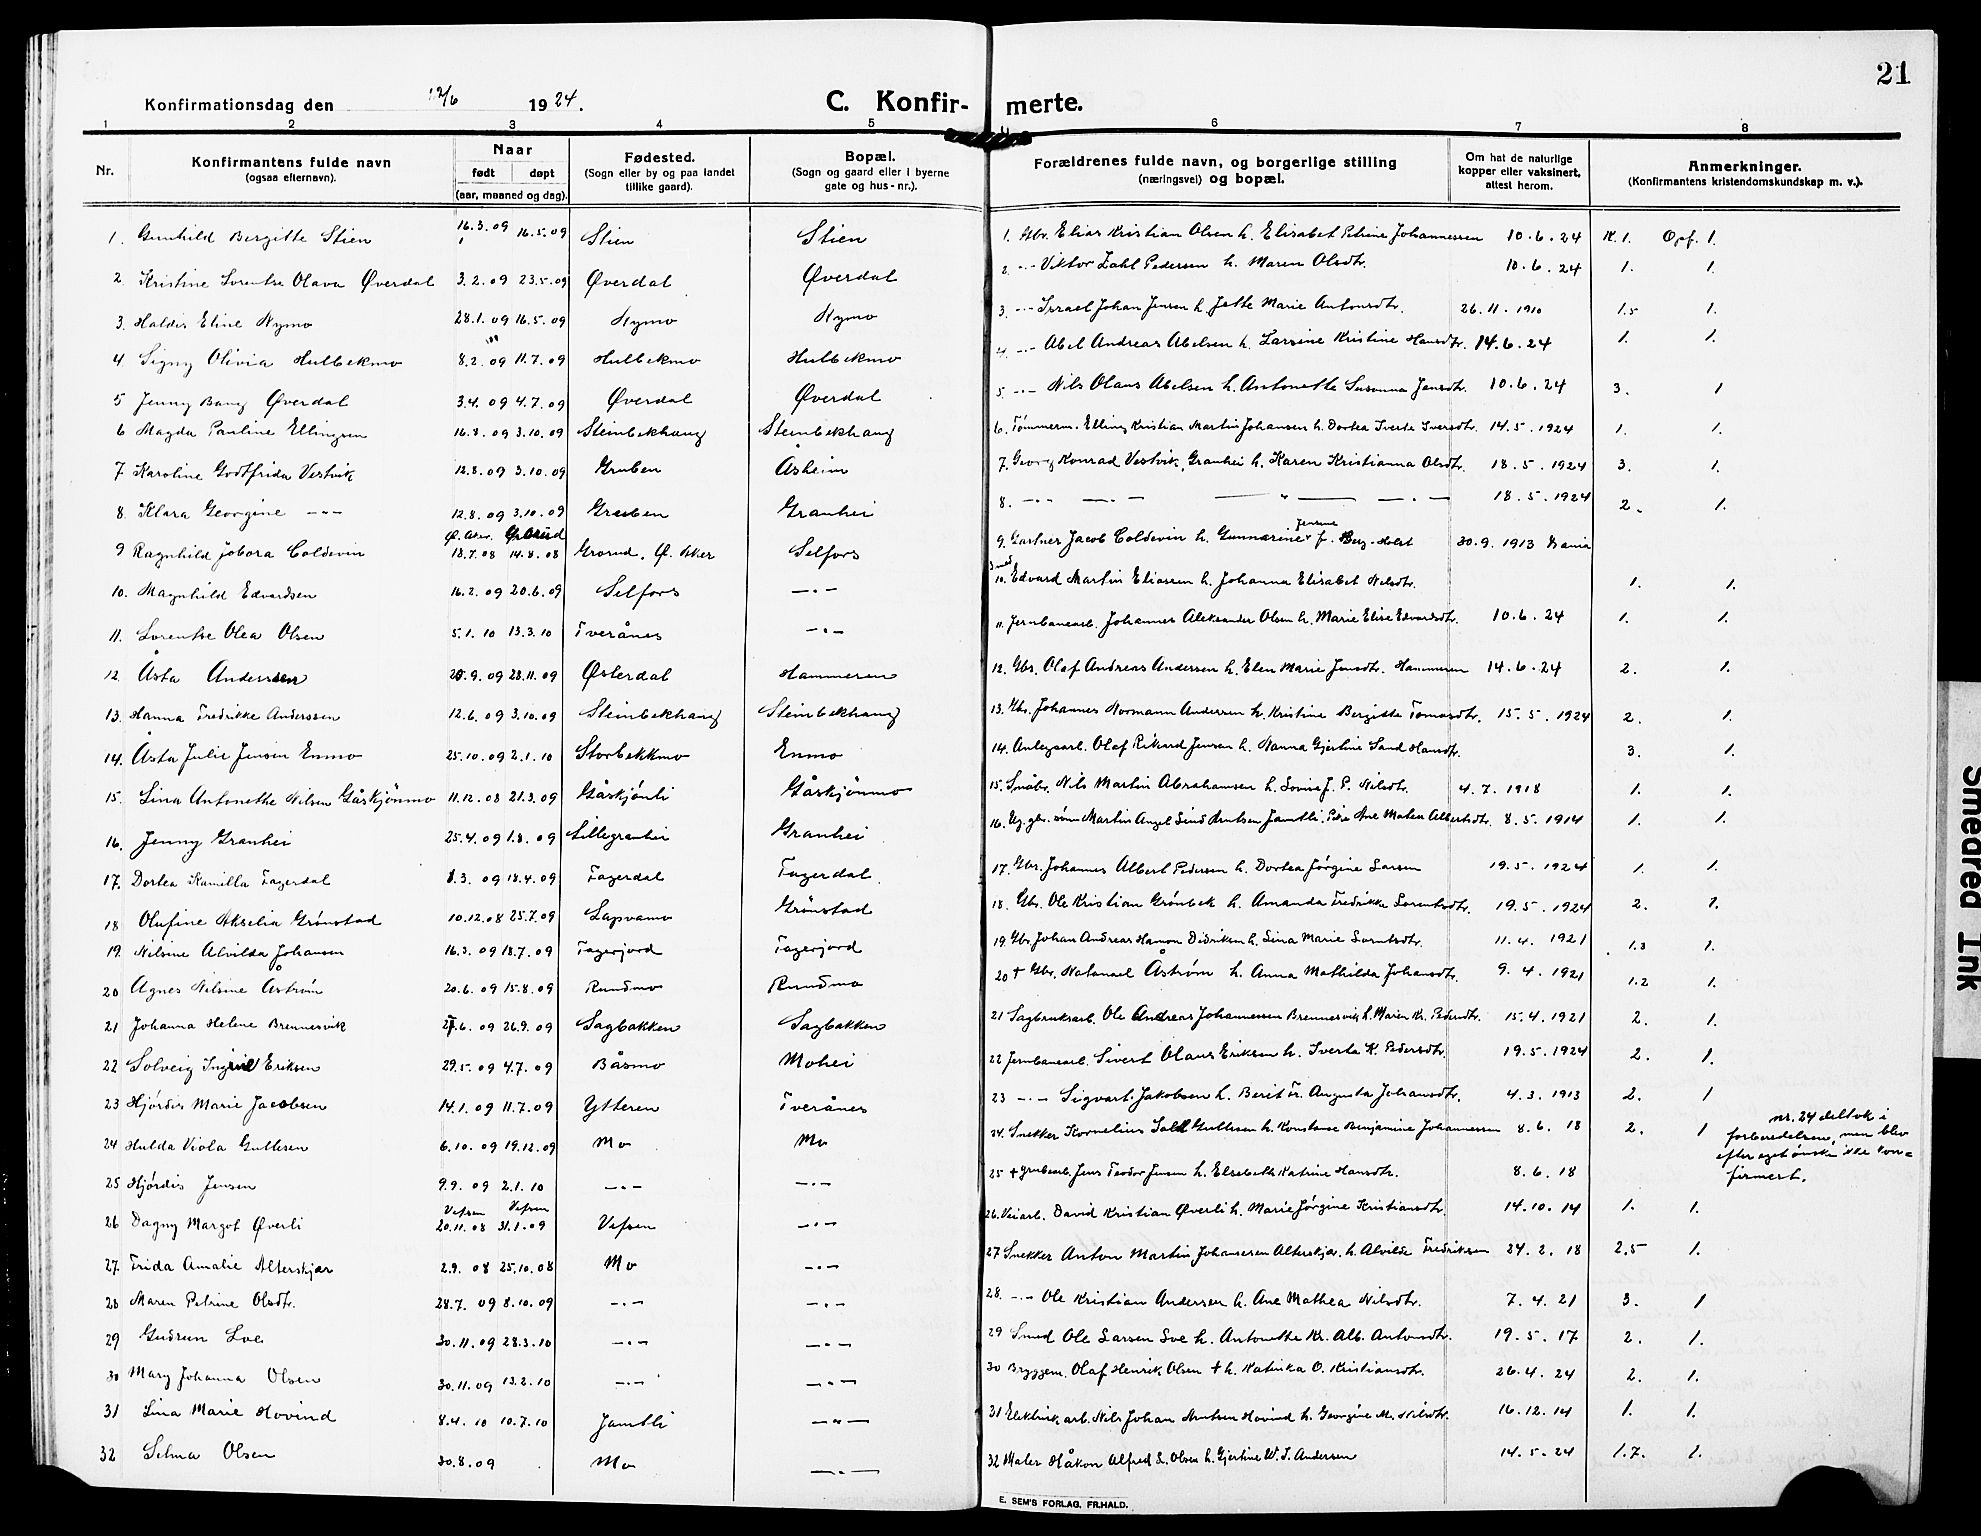 21
Konfirmationsdag den 12/6 1924. C. Konfir- merte.
1 2 3 4 5 6 7 8
Nr. Konfirmantens fulde navn (ogsaa efternavn). Naar født døpt (aar, maaned og dag). Fødested. (Sogn eller by og paa landet tillike gaard). Bopæl. (Sogn og gaard eller i byerne gate og hus-nr.). Forældrenes fulde navn, og borgerlige stilling (næringsvei) og bopæl. Om hat de naturlige kopper eller vaksinert, attest herom. Anmerkninger. (Konfirmantens kristendomskundskap m. v.).
1. Gunhild Bergitte Stien 16.3.09 16.5.09 Stien Stien 1. Gbr. Elias Kristian Olsen h. Elisabet Petrine Johannessen 10.6.24 K. 1. Opf. 1.
2 Kristine Lorentse Olava Øverdal 3.2.09 23.5.09 Øverdal Øverdal 2. -"- Viktor Zahl Pedersen h. Maren Olsdtr. 10.6.24 1. 1.
3. Haldis Eline Nymo 28.1.09 16.5.09 Nymo Nymo 3. -"- Israel Johan Jensen h. Jette Marie Antonsdtr. 26.11.1910 1.5 1.
4 Signy Olivia Hulbekmo 8.2.09 11.7.09 Hulbekmo Hulbekmo 4. -"- Abel Andreas Abelsen h. Larsine Kristine Hansdtr. 14.6.24 1. 1.
5 Jenny Bang Øverdal 3.4.09 4.7.09 Øverdal Øverdal 5. -"- Nils Olaus Abelsen h. Antonette Susanna Jensdtr. 10.6.24 3. 1
6 Magda Pauline Ellingsen 16.8.09 3.10.09 Steinbekhaug Steinbekhaug 6. Tømmerm. Elling Kristian Martin Johansen h. Dortea Sverte Iversdtr. 14.5.1924 1. 1.
7 Karoline Godtfrida Vestvik 12.8.09 3.10.09 Gruben Åsheim 7. Georg Konrad Vestvik, Granhei h. Karen Kristianna Olsdtr. 18.5.1924 3. 1.
8. Klara Georgine -"- 12.8.09 3.10.09 Gruben Granhei 8. -"- -"- -"- 18.5.1924 2. 1.
9 Ragnhild Jobora Coldevin Ø. Aker. 13.7.08 Grorud 14.8.08 Grorud, Ø. Aker Selfors 9. Gartner Jacob Coldevin h. Gunnarine Jensine f. Berg-Holst 30.9.1913 Dania
10. Magnhild Edvardsen 16.2.09 20.6.09 Selfors -"- 10. Smed Edvard Martin Eliassen h. Johanna Elisabet Nilsdtr. 1. 1.
11. Lorentse Olea Olsen 5.1.10 13.3.10 Tverånes -"- 11. Jernbanearb. Johannes Aleksander Olsen h. Marie Elise Edvardsdtr. 10.6.24 1. 1.
12. Åsta Anderssen 20.9.09 28.11.09 Østerdal Hammeren 12. Gbr. Olaf Andreas Anderssen h. Elen Marie Jensdtr. Hammeren 14.6.24 2. 1.
13. Hanna Fredrikke Anderssen 12.6.09 3.10.09 Steinbekhaug Steinbekhaug 13. Gbr. Johannes Normann Anderssen h. Kristine Bergitte Tomasdtr. 15.5.1924 2. 1.
14. Åsta Julie Jensen Enmo 25.10.09 2.1.10 Storbekkmo Enmo 14. Anlegsarb. Olaf Rikard Jensen h. Nanna Gjertine Sand Hansdtr. 3. 1.
15. Lina Antonette Nilsen Gåskjønmo 11.12.08 21.3.09 Gåskjønli Gåskjønmo 15. Småbr. Nils Martin Abrahamsen h. Lovise J. P. Nilsdtr. 4.7.1918 1. 1.
16. Jenny Granhei 25.4.09 1.8.09 Lillegranhei Granhei 16. Ug. gbr. sønn Martin Angel Sund Knutsen Jamtli, Pike Ane Malea Albertsdtr. 8.5.1914 1. 1.
17. Dortea Kamilla Fagerdal 1.3.09 18.4.09 Fagerdal Fagerdal. 17. Gbr. Johannes Albert Pedersen h. Dortea Jørgine Larsen 19.5.1924 1. 1.
18 Olufine Akselia Grønstad 10.12.08 25.7.09 Lapvamo Grønstad 18. Gbr. Ole Kristian Grønbek h. Amanda Fredrikke Lorentsdtr. 19.5.1924 2. 1.
19. Nilsine Alvilda Johansen 16.3.09 18.7.09 Fagerjord Fagerjord 19. Gbr. Johan Andreas Hamon Didriksen h. Lina Marie Lorntsdtr. 11.4.1921 1.3 1.
20 Agnes Nilsine Åström 20.6.09 15.8.09 Rundmo Rundmo 20 + Gbr. Natanael Åstrøm h. Anna Mathilda Johansdtr. 9.4.1921 1.2 1.
21 Johanna Helene Brennesvik 27.6.09 26.9.09 Sagbakken Sagbakken 21 Sagbruksarb. Ole Andreas Johannessen Brennesvik h. Maren Kr. Pedersdtr. 15.4.1921 2. 1.
22 Solveig Ingrid Eriksen 29.5.09 4.7.09 Båsmo Mohei 22 Jernbanearb. Sivert Olaus Eriksen h. Iverta K. Pedersdtr. 19.5.1924 2. 1.
23 Hjørdis Marie Jacobsen 14.1.09 11.7.09 Ytteren Tverånes 23 -"- Sigvart Jakobsen h. Berit Fr. Augusta Johansdtr. 4.3.1913 2. 1
24 Hulda Viola Gullesen 6.10.09 19.12.09 Mo Mo 24. Snekker Kornelius Sall Gullesen h. Konstanse Benjamine Johannessen 8.6.18 2. 1 nr. 24 deltok i
forberedelsen, men blev
efter eget ønske ikke kon=
firmert.
25 Hjørdis Jensen 9.9.09 2.1.10 -"- -"- 25 + grubearb. Jens Teodor Jensen h. Elsebeth Katrine Hansdtr. 8.6.18
26 Dagny Margot Øverli Vefsen 20.11.08 Vefsen 31.1.09 Vefsen -"- 26. Veiarb. David Kristian Øverli h. Marie Jørgine Kristiansdtr. 14.10.14 1. 1.
27. Frida Amalie Alterskjær 2.9.08 25.10.08 Mo -"- 27 Snekker Anton Martin Johansen Alterskjær h. Alvilde Fredriksen 24.2.18 2.5 1.
28 Maren Petrine Olsdtr. 28.7.09 8.10.09 -"- -"- 28. -"- Ole Kristian Andersen h. Ane Mathea Nilsdtr. 7.4.21 3. 1
29 Gudrun Loe 30.11.09 28.3.10 -"- -"- 29 Smed Ole Larsen Loe h. Antonette Kr. Alb. Antonsdtr. 19.5.17 2. 1.
30 Mary Johanna Olsen 30.11.09 13.2.10 -"- -"- 30 Bryggem. Olaf Henrik Olsen + h. Katinka O. Kristiansdtr. 26.4.24 2. 1.
31 Lina Marie Hovind 8.4.10 10.7.10 Jamtli -"- 31 Elektrik.arb. Nils Johan Knutsen Hovind h. Georgine M. Nilsdtr. 16.12.14 1. 1.
32 Selma Olsen 30.8.09 Mo -"- 32 Maler Håkon Alfred L. Olsen h. Gjertine W. I. Andersen 14.5.24 1.7. 1.
E. SEM'S FORLAG, FR.HALD.
Smeared Ink